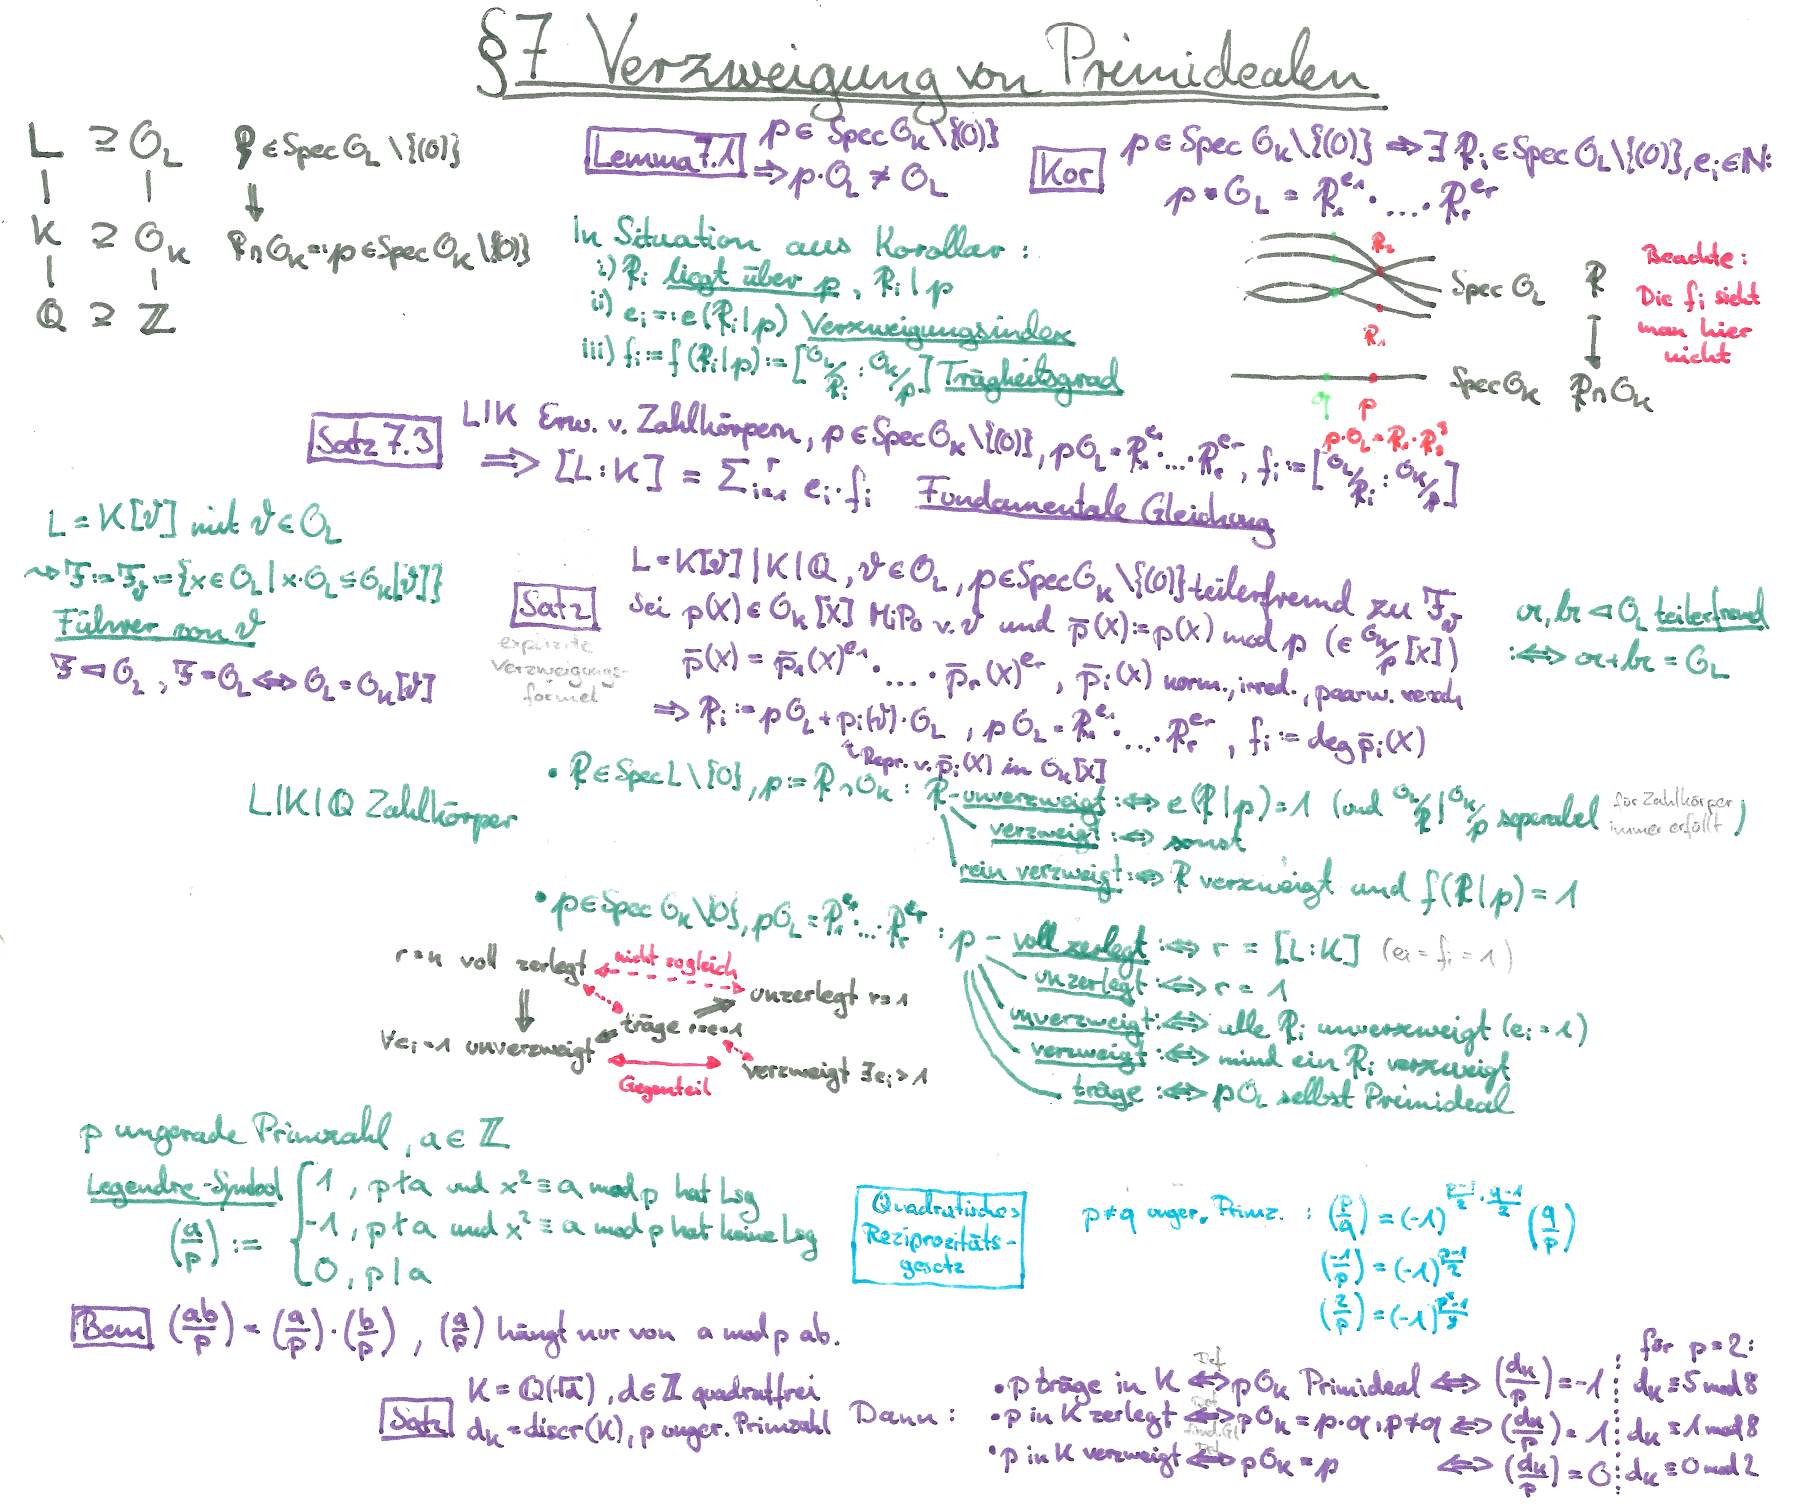 §7 Verzweigung von Primidealen
L ⊇ O_L   𝔓 ∈ Spec O_L \ {(0)}
|   |   ⇓
K ⊇ O_K   𝔓 ∩ O_K =: p ∈ Spec O_K \ {(0)}
|   |
ℚ ⊇ ℤ
Lemma 7.1   p ∈ Spec O_K \ {(0)}
⇒ p·O_L ≠ O_L
Kor   p ∈ Spec O_K \ {(0)} ⇒ ∃ 𝔓_i ∈ Spec O_L \ {(0)}, e_i ∈ ℕ:
p · O_L = 𝔓_1^{e_1} · … · 𝔓_r^{e_r}
In Situation aus Korollar:
i) 𝔓_i liegt über p, 𝔓_i | p
ii) e_i =: e(𝔓_i | p) Verzweigungsindex
iii) f_i := f(𝔓_i | p) := [O_L/𝔓_i : O_K/p] Trägheitsgrad
𝔓_2
Spec O_L   𝔓
𝔓_1
Spec O_K   𝔓 ∩ O_K
q   p
p·O_L = 𝔓_1·𝔓_2^3
Beachte:
Die f_i sieht
man hier
nicht
Satz 7.3   L|K Erw. v. Zahlkörpern, p ∈ Spec O_K \ {(0)}, pO_L = 𝔓_1^{e_1} · … · 𝔓_r^{e_r}, f_i := [O_L/𝔓_i : O_K/p]
⇒ [L:K] = Σ_{i=1}^r e_i · f_i   Fundamentale Gleichung
L = K[ϑ] mit ϑ ∈ O_L
⇝ 𝔉 := 𝔉_ϑ := {x ∈ O_L | x·O_L ⊆ O_K[ϑ]}
Führer von ϑ
𝔉 ⊲ O_L, 𝔉 = O_L ⇔ O_L = O_K[ϑ]
Satz
explizite
Verzweigungs-
formel
L = K[ϑ] | K | ℚ, ϑ ∈ O_L, p ∈ Spec O_K \ {(0)} teilerfremd zu 𝔉_ϑ
Sei p(X) ∈ O_K[X] MiPo v. ϑ und p̄(X) := p(X) mod p (∈ O_K/p [X])
p̄(X) = p̄_1(X)^{e_1} · … · p̄_r(X)^{e_r}, p̄_i(X) norm., irred., paarw. versch
⇒ 𝔓_i := pO_L + p_i(ϑ)·O_L, pO_L = 𝔓_1^{e_1} · … · 𝔓_r^{e_r}, f_i := deg p̄_i(X)
Repr. v. p̄_i(X) in O_K[X]
𝔞, 𝔟 ⊲ O_L teilerfremd
:⇔ 𝔞 + 𝔟 = O_L
L|K|ℚ Zahlkörper
• 𝔓 ∈ Spec L \ {0}, p := 𝔓 ∩ O_K : 𝔓 – unverzweigt :⇔ e(𝔓|p) = 1 (und O_L/𝔓 | O_K/p separabel für Zahlkörper immer erfüllt)
verzweigt :⇔ sonst
rein verzweigt :⇔ 𝔓 verzweigt und f(𝔓|p) = 1
• p ∈ Spec O_K \ {0}, pO_L = 𝔓_1^{e_1} · … · 𝔓_r^{e_r} : p – voll zerlegt :⇔ r = [L:K] (e_i = f_i = 1)
unzerlegt :⇔ r = 1
unverzweigt :⇔ alle 𝔓_i unverzweigt (e_i = 1)
verzweigt :⇔ mind ein 𝔓_i verzweigt
träge :⇔ pO_L selbst Primideal
r = n voll zerlegt   nicht zugleich   unzerlegt r = 1
träge r=e=1
∀e_i = 1 unverzweigt   Gegenteil   verzweigt ∃e_i > 1
p ungerade Primzahl, a ∈ ℤ
Legendre-Symbol
(a/p) := { 1, p∤a und x² ≡ a mod p hat Lsg
-1, p∤a und x² ≡ a mod p hat keine Lsg
0, p|a
Quadratisches
Reziprozitäts-
gesetz
p≠q unger. Primz. : (p/q) = (-1)^{(p-1)/2 · (q-1)/2} (q/p)
(-1/p) = (-1)^{(p-1)/2}
(2/p) = (-1)^{(p²-1)/8}
Bem   (ab/p) = (a/p)·(b/p), (a/p) hängt nur von a mod p ab.
Satz   K = ℚ(√d), d ∈ ℤ quadratfrei
d_K = discr(K), p unger. Primzahl   Dann:
für p = 2:
• p träge in K ⇔ Def pO_K Primideal ⇔ (d_K/p) = -1   d_K ≡ 5 mod 8
• p in K zerlegt ⇔ Def fund.Gl pO_K = p·q, p≠q ⇔ (d_K/p) = 1   d_K ≡ 1 mod 8
• p in K verzweigt ⇔ Def pO_K = p   ⇔ (d_K/p) = 0   d_K ≡ 0 mod 2